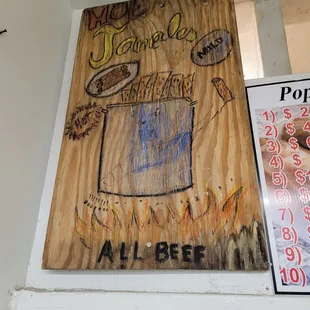 HOT
Tamales
MILD
HOT
ALL BEEF
Pop
1) $ 2
2) $
3) $
4) $
5) $
6) $
7) $
8) $
9) $
10) $